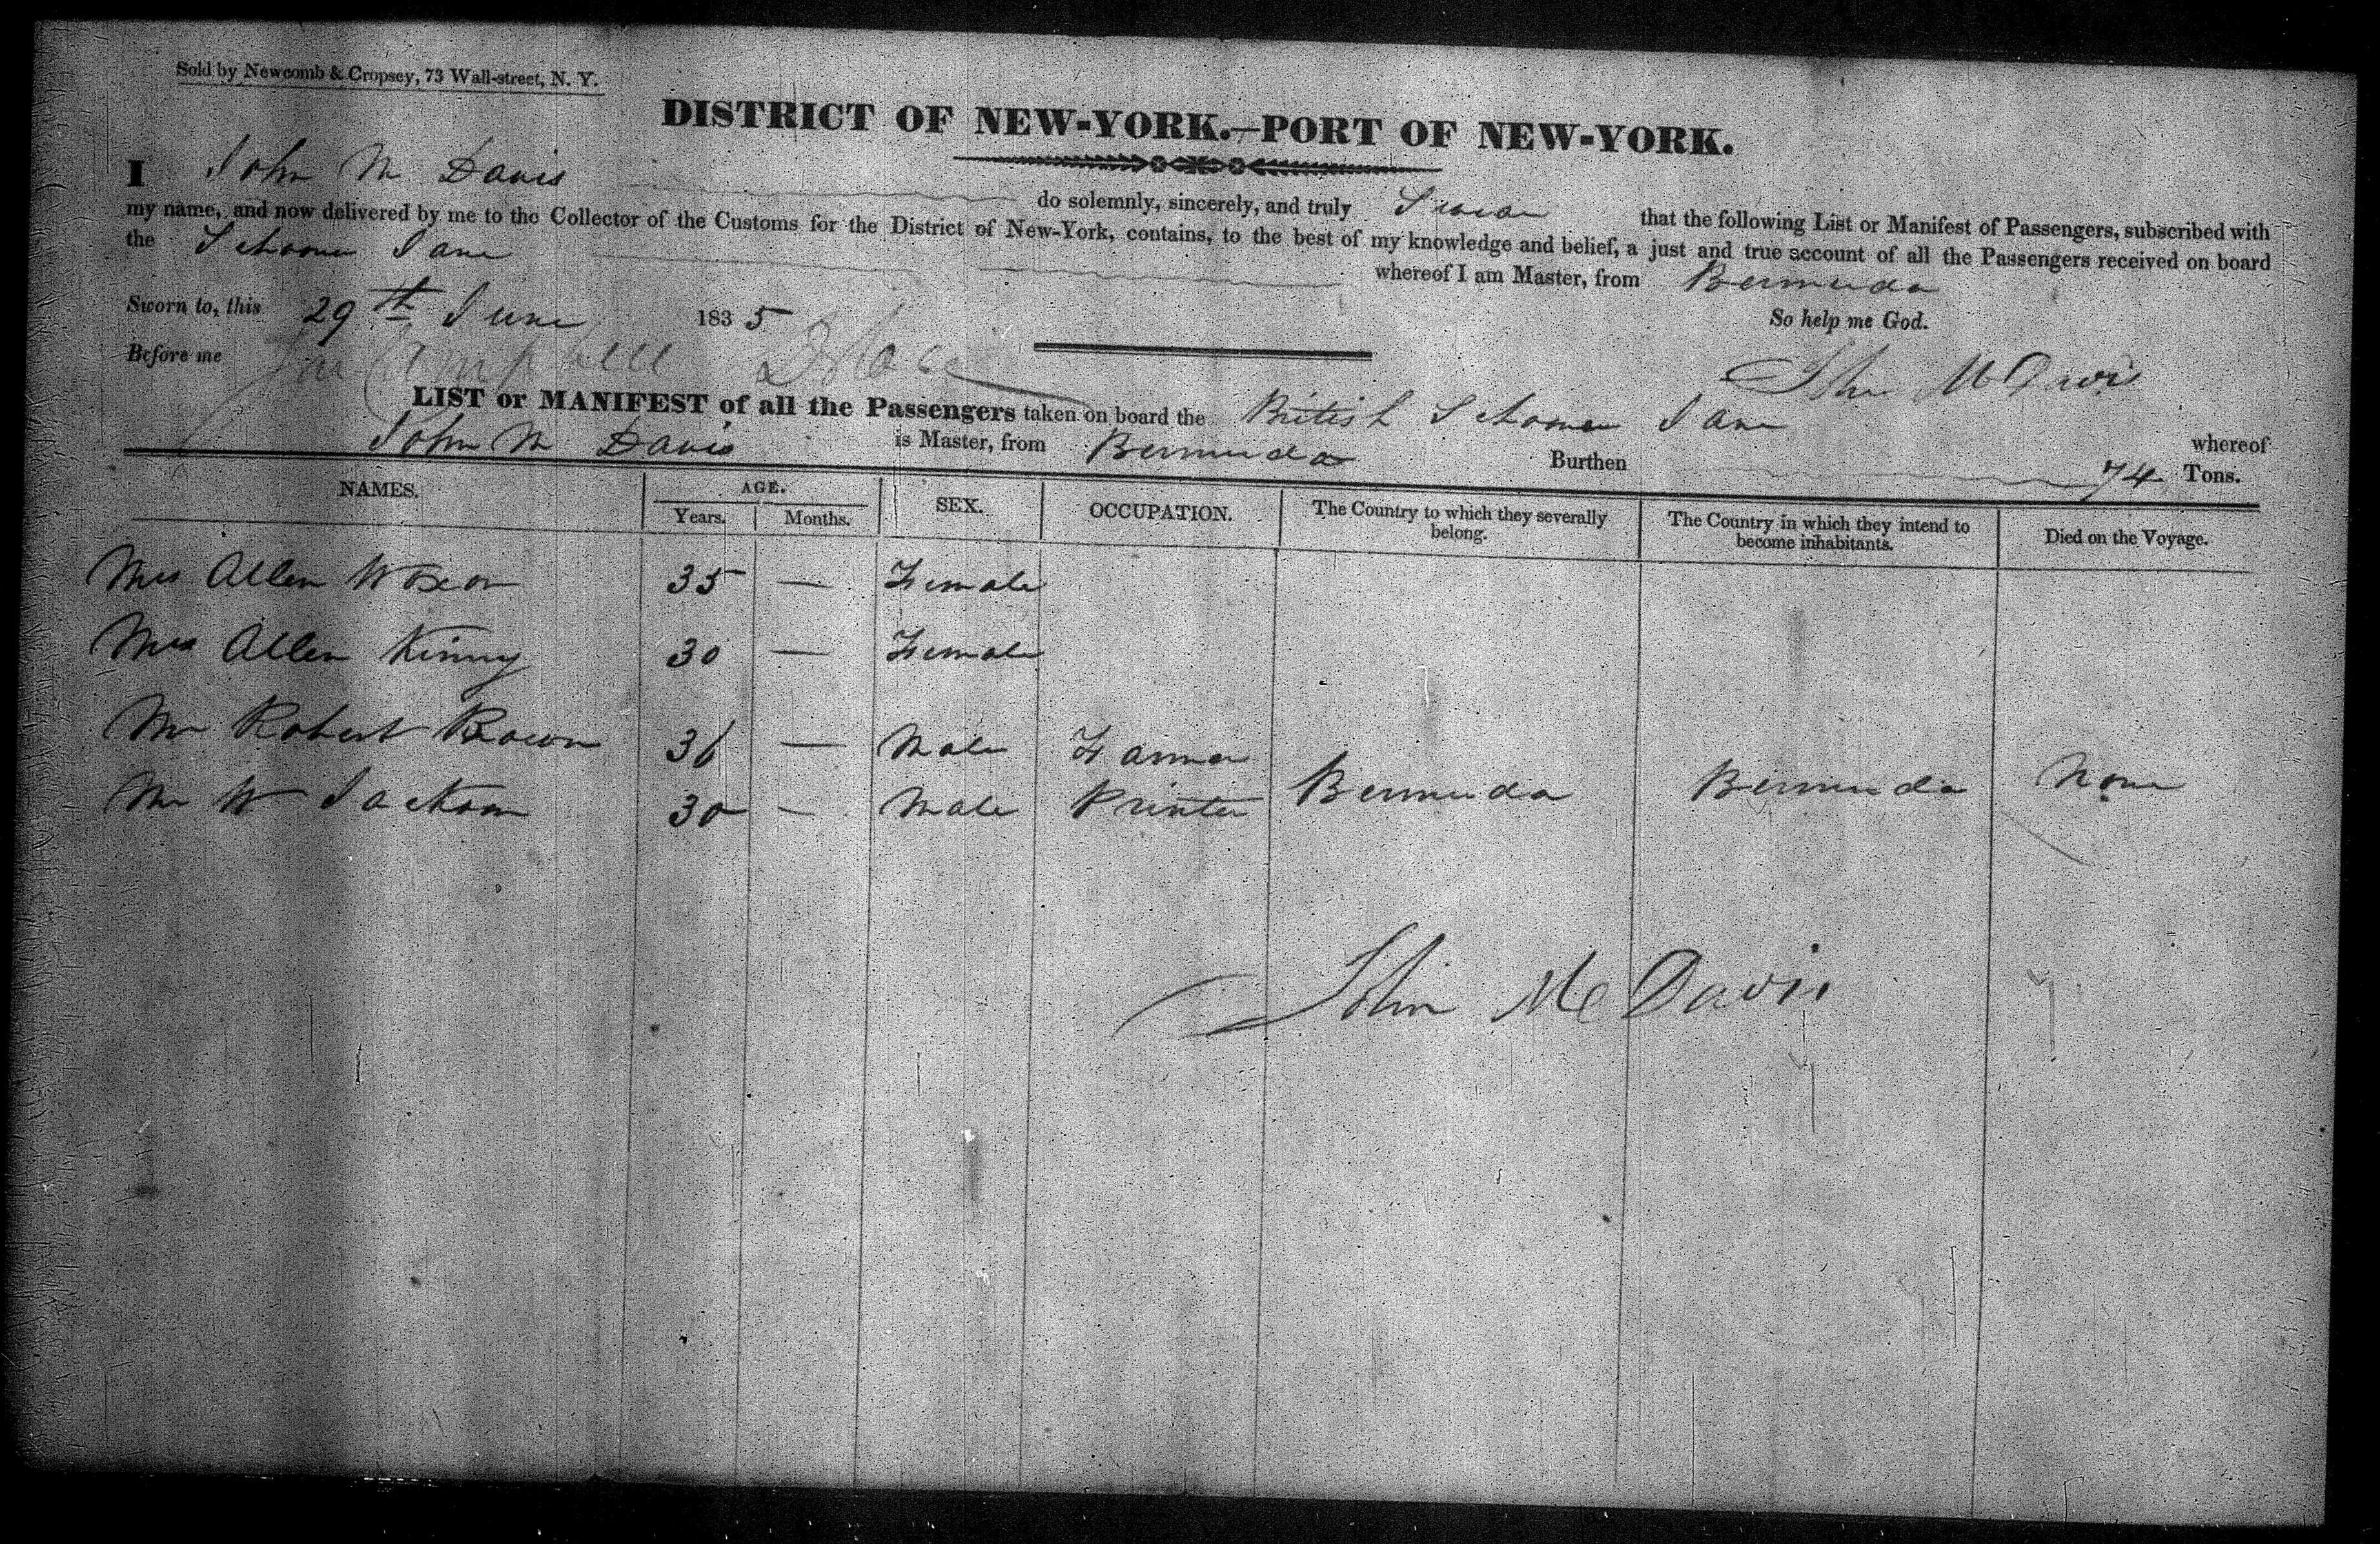 Sold by Newcomb & Cropsey, 73 Wall-street, N. Y.
DISTRICT OF NEW-YORK.—PORT OF NEW-YORK.
I John M Davis do solemnly, sincerely, and truly Swear that the following List or Manifest of Passengers, subscribed with
my name, and now delivered by me to the Collector of the Customs for the District of New-York, contains, to the best of my knowledge and belief, a just and true account of all the Passengers received on board
the Schooner Jane whereof I am Master, from Bermuda
So help me God.
Sworn to, this 29th June 1835
Before me Campbell
John Mc Davis
LIST or MANIFEST of all the Passengers taken on board the British Schooner Jane whereof
John M Davis is Master, from Bermuda Burthen 74 Tons.
NAMES. AGE. SEX. OCCUPATION. The Country to which they severally belong. The Country in which they intend to become inhabitants. Died on the Voyage.
Years. Months.
Mrs Allen 35 — Female
Mrs Allen Kinny 30 — Female
Mr Robert Brown 36 — Male Farmer
Mr W Jackson 30 — Male Printer Bermuda Bermuda None
John Mc Davis